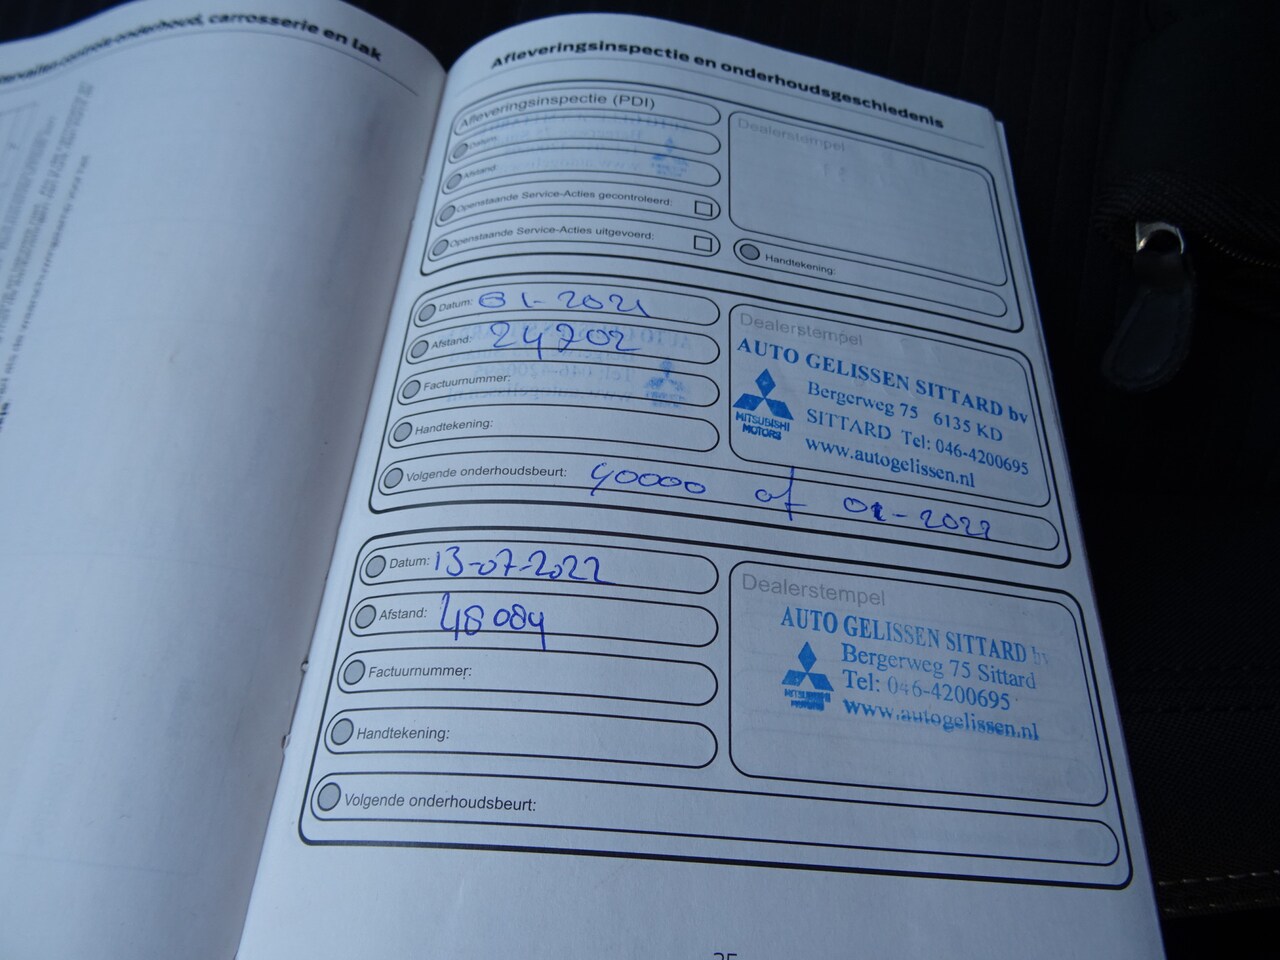 onderhoud, carrosserie en lak
Afleveringsinspectie en onderhoudsgeschiedenis
Afleveringsinspectie (PDI)
Datum:
Afstand:
Openstaande Service-Acties gecontroleerd:
Openstaande Service-Acties uitgevoerd:
Dealerstempel
Handtekening:
Datum: 01-2021
Afstand: 24702
Factuurnummer:
Handtekening:
Volgende onderhoudsbeurt: 40000 of 01-2022
Dealerstempel
AUTO GELISSEN SITTARD bv
Bergerweg 75 6135 KD
SITTARD Tel: 046-4200695
www.autogelissen.nl
MITSUBISHI
MOTORS
Datum: 13-07-2022
Afstand: 48084
Factuurnummer:
Handtekening:
Volgende onderhoudsbeurt:
Dealerstempel
AUTO GELISSEN SITTARD bv
Bergerweg 75 Sittard
Tel: 046-4200695
www.autogelissen.nl
MITSUBISHI
MOTORS